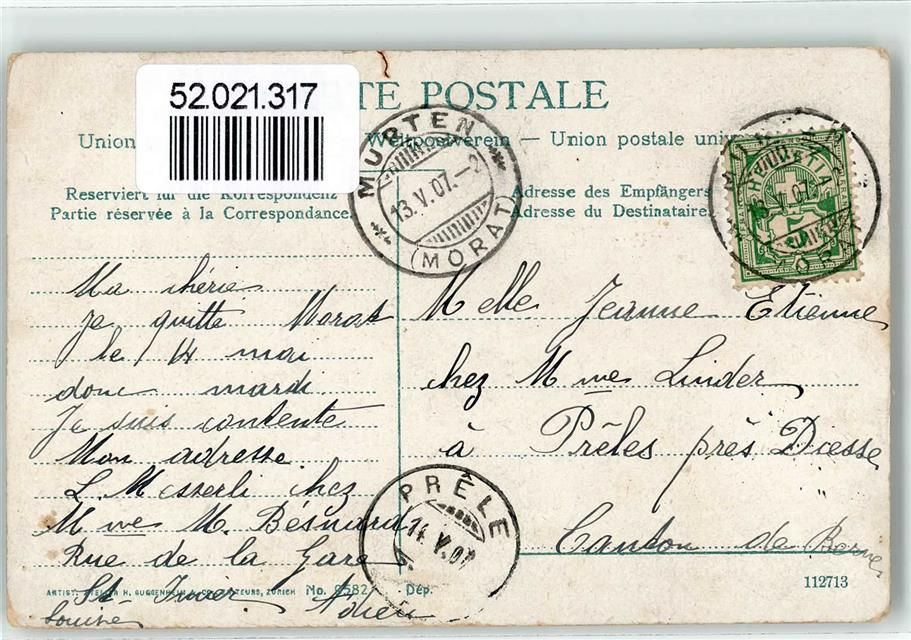 52.021.317
TE POSTALE
Union Weltpostverein — Union postale univ
Reserviert für die Korrespondenz
Partie réservée à la Correspondance.
Adresse des Empfängers
Adresse du Destinataire
MURTEN
13.V.07.-2
(MORAT)
HELVETIA
Ma chérie
Je quitte Morat
le 14 mai
donc mardi
Je suis contente
Mon adresse.
L Messerli chez
Mme M. Bésnard
Rue de la Gare
St-Imier Adieu
Louise
Melle Jeanne Etienne
chez Mme Linder
à Prêles près Diesse
Canton de Berne
PRÊLE
14.V.07
ARTIST. ATELIER H. GUGGENHEIM & CO., EDITEURS, ZÜRICH No. Dép.
112713